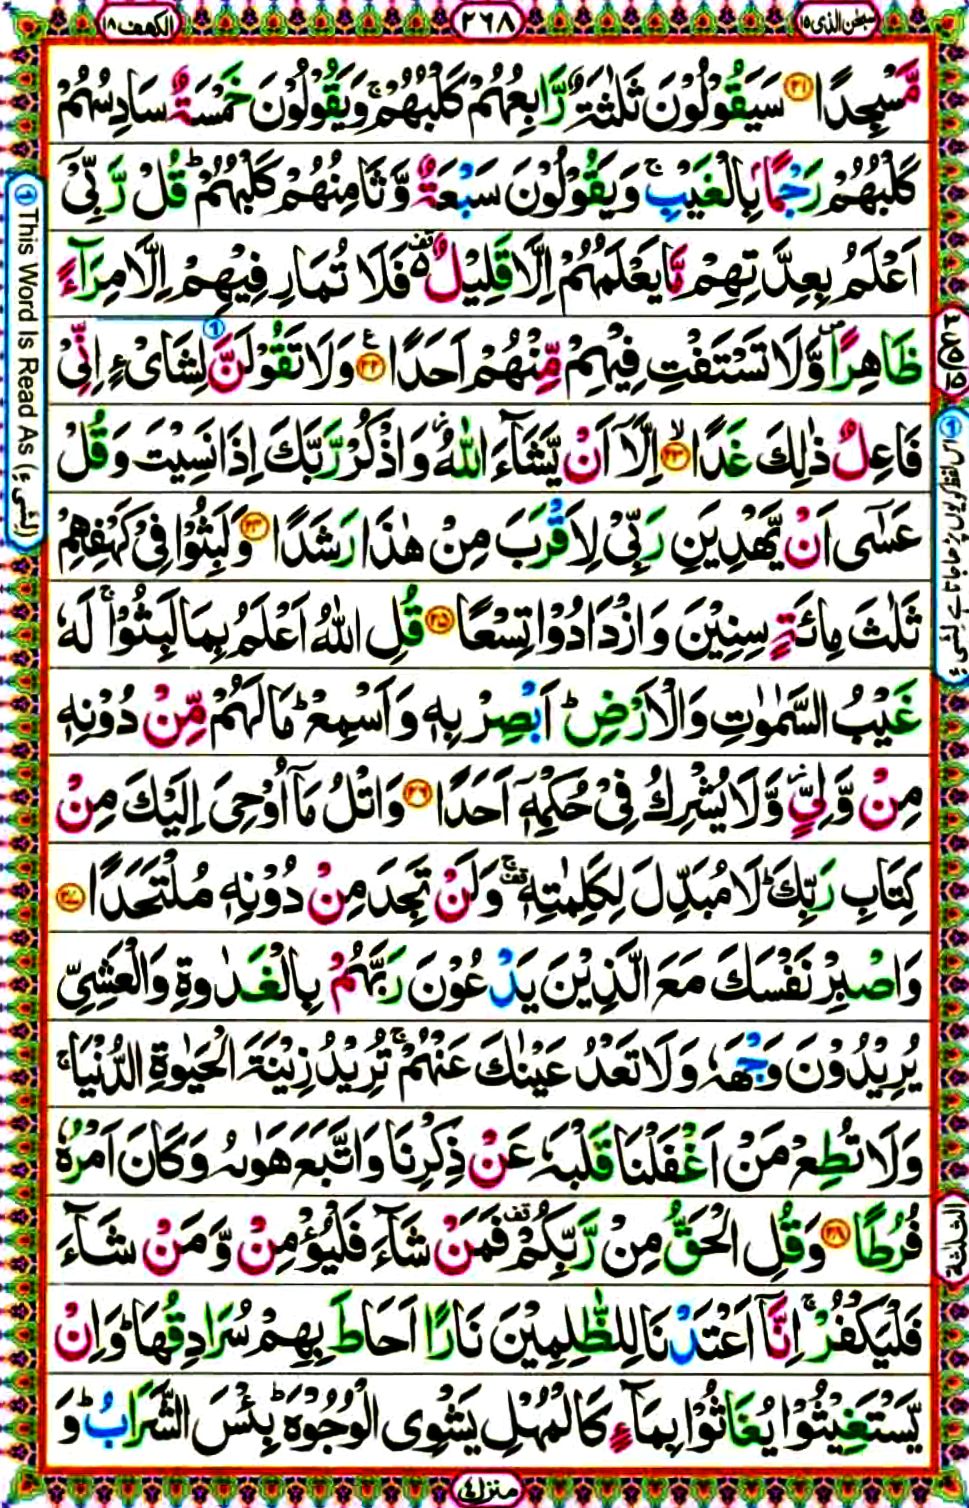 سبحٰن الذی ۱۵
۲۶۸
الکهف ۱۸
مَّسْجِدًا ۝۲۱ سَيَقُوْلُوْنَ ثَلٰثَةٌ رَّابِعُهُمْ كَلْبُهُمْ ۚ وَيَقُوْلُوْنَ خَمْسَةٌ سَادِسُهُمْ
كَلْبُهُمْ رَجْمًۢا بِالْغَيْبِ ۚ وَيَقُوْلُوْنَ سَبْعَةٌ وَّثَامِنُهُمْ كَلْبُهُمْ ؕ قُلْ رَّبِّیْۤ
اَعْلَمُ بِعِدَّتِهِمْ مَّا يَعْلَمُهُمْ اِلَّا قَلِيْلٌ ۫۬ فَلَا تُمَارِ فِيْهِمْ اِلَّا مِرَآءً
ظَاهِرًا ۪ وَّلَا تَسْتَفْتِ فِيْهِمْ مِّنْهُمْ اَحَدًا ۝۲۲ وَلَا تَقُوْلَنَّ لِشَایْءٍ اِنِّیْ
فَاعِلٌ ذٰلِكَ غَدًا ۝۲۳ اِلَّاۤ اَنْ يَّشَآءَ اللّٰهُ ؗ وَاذْكُرْ رَّبَّكَ اِذَا نَسِيْتَ وَقُلْ
عَسٰۤى اَنْ يَّهْدِيَنِ رَبِّیْ لِاَقْرَبَ مِنْ هٰذَا رَشَدًا ۝۲۴ وَلَبِثُوْا فِیْ كَهْفِهِمْ
ثَلٰثَ مِائَةٍ سِنِيْنَ وَازْدَادُوْا تِسْعًا ۝۲۵ قُلِ اللّٰهُ اَعْلَمُ بِمَا لَبِثُوْا ۚ لَهٗ
غَيْبُ السَّمٰوٰتِ وَالْاَرْضِ ؕ اَبْصِرْ بِهٖ وَاَسْمِعْ ؕ مَا لَهُمْ مِّنْ دُوْنِهٖ
مِنْ وَّلِیٍّ ؗ وَّلَا يُشْرِكُ فِیْ حُكْمِهٖۤ اَحَدًا ۝۲۶ وَاتْلُ مَاۤ اُوْحِیَ اِلَيْكَ مِنْ
كِتَابِ رَبِّكَ ؕ لَا مُبَدِّلَ لِكَلِمٰتِهٖ ۚ۫ وَلَنْ تَجِدَ مِنْ دُوْنِهٖ مُلْتَحَدًا ۝۲۷
وَاصْبِرْ نَفْسَكَ مَعَ الَّذِيْنَ يَدْعُوْنَ رَبَّهُمْ بِالْغَدٰوةِ وَالْعَشِیِّ
يُرِيْدُوْنَ وَجْهَهٗ وَلَا تَعْدُ عَيْنٰكَ عَنْهُمْ ۚ تُرِيْدُ زِيْنَةَ الْحَيٰوةِ الدُّنْيَا ۚ
وَلَا تُطِعْ مَنْ اَغْفَلْنَا قَلْبَهٗ عَنْ ذِكْرِنَا وَاتَّبَعَ هَوٰىهُ وَكَانَ اَمْرُهٗ
فُرُطًا ۝۲۸ وَقُلِ الْحَقُّ مِنْ رَّبِّكُمْ ۫ فَمَنْ شَآءَ فَلْيُؤْمِنْ وَّمَنْ شَآءَ
فَلْيَكْفُرْ ۙ اِنَّاۤ اَعْتَدْنَا لِلظّٰلِمِيْنَ نَارًا اَحَاطَ بِهِمْ سُرَادِقُهَا ؕ وَاِنْ
يَّسْتَغِيْثُوْا يُغَاثُوْا بِمَآءٍ كَالْمُهْلِ يَشْوِی الْوُجُوْهَ ؕ بِئْسَ الشَّرَابُ ؕ وَ
منزل ۴
① This Word Is Read As (لِشَیْءٍ)
① اس لفظ کو یوں پڑھا جاتا ہے لِشَیْءٍ
الثلٰثة